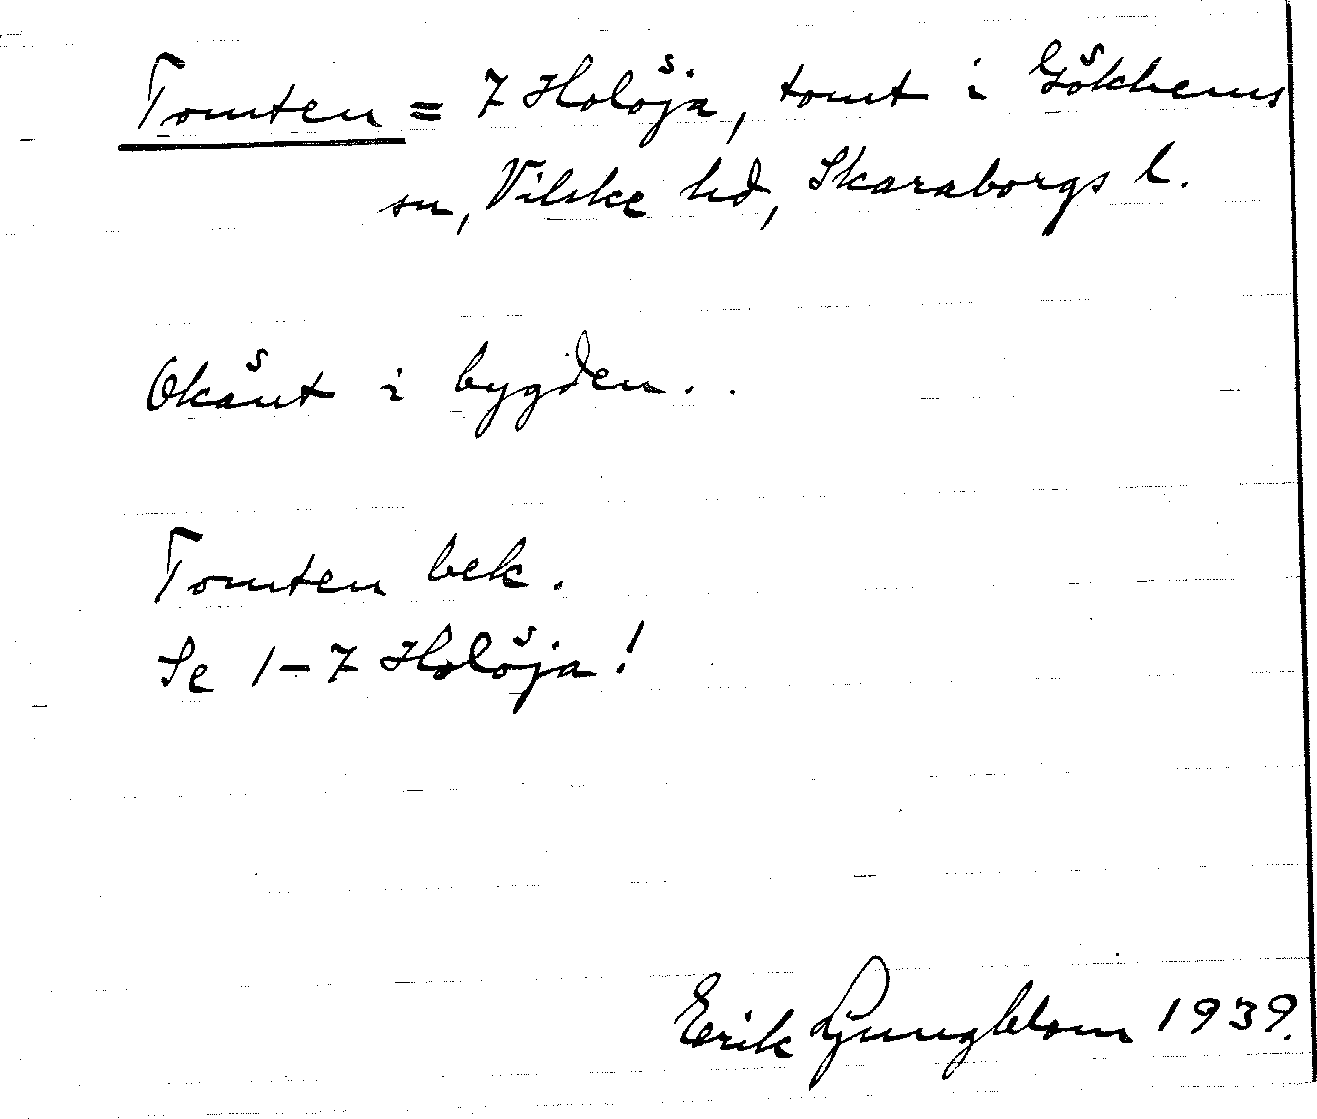 Tomten = 7 Holöja, tomt i Gökhems
sn, Vilske hd, Skaraborgs l.
Okänt i bygden. .
Tomten bek.
Se 1-7 Holöja!
Erik Ljungblom 1939.